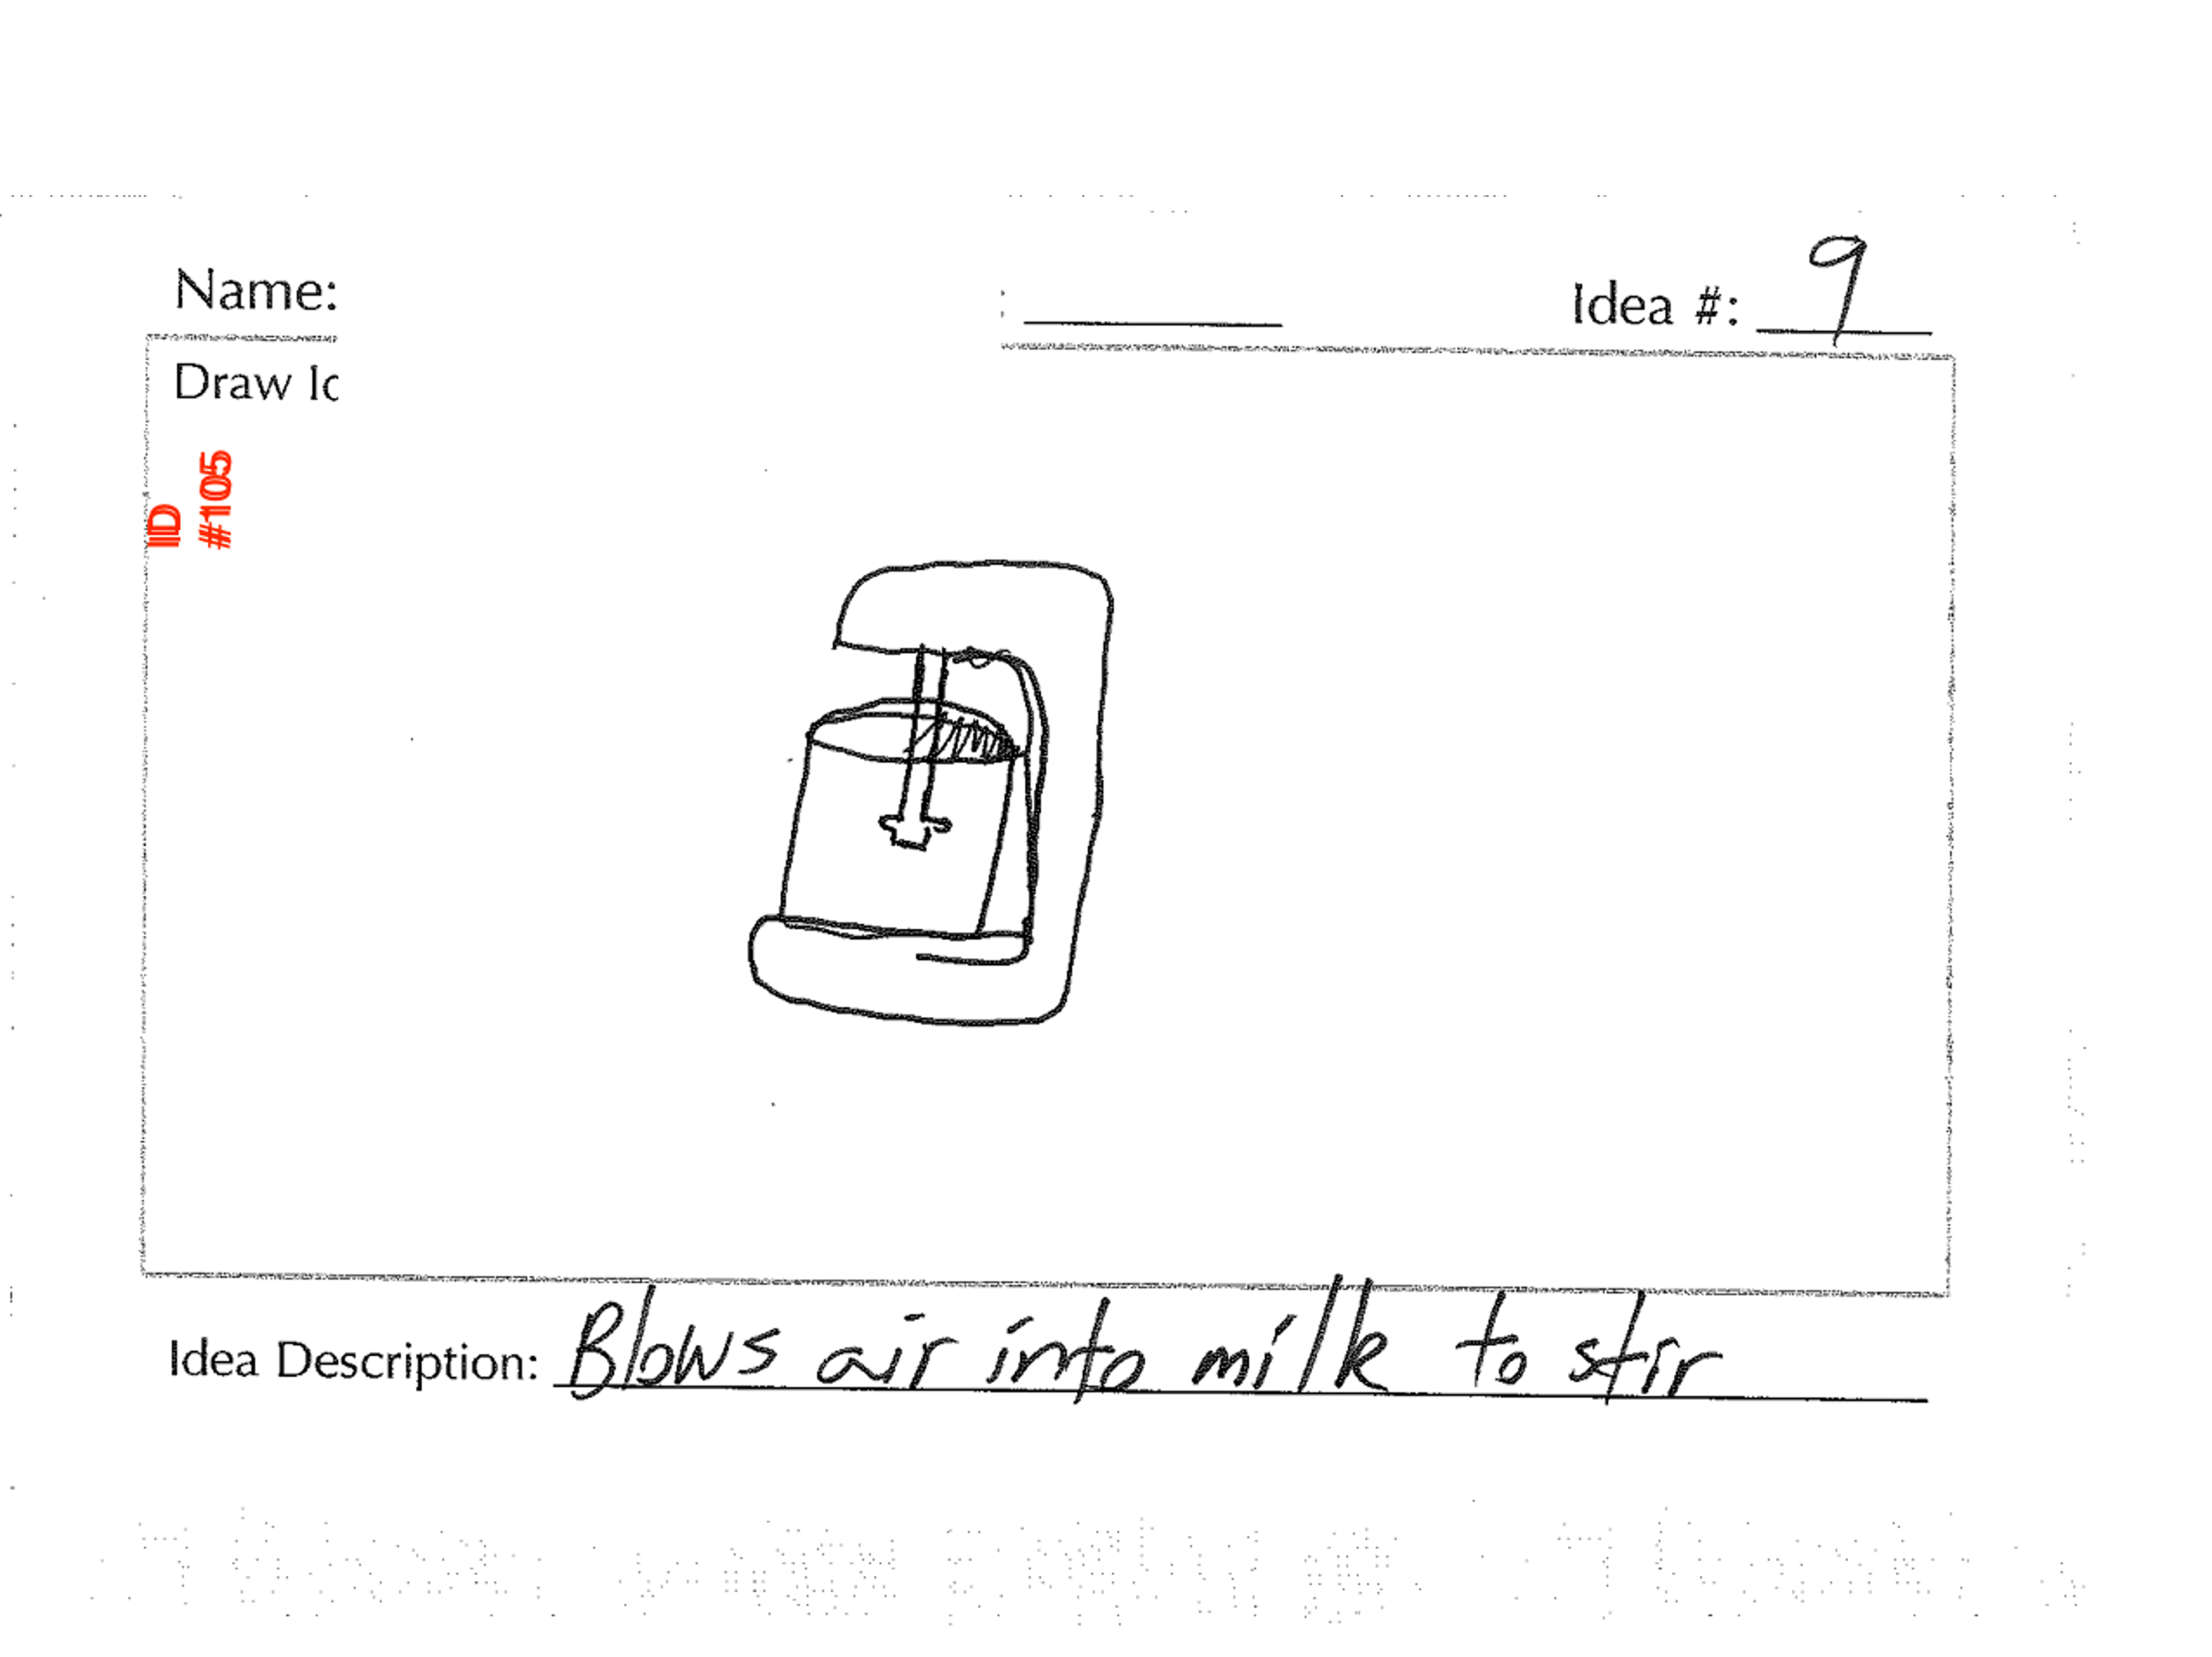 Name:
Idea #: 9
Draw Id
ID
#105
Idea Description: Blows air into milk to stir